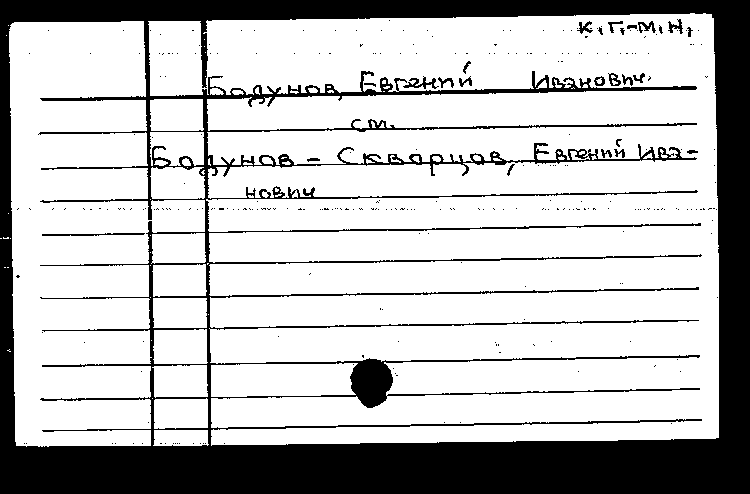 К.П.-М.Н.
Бодунов, Евгений Иванович.
см.
Бодунов - Скворцов, Евгений Ива-
нович